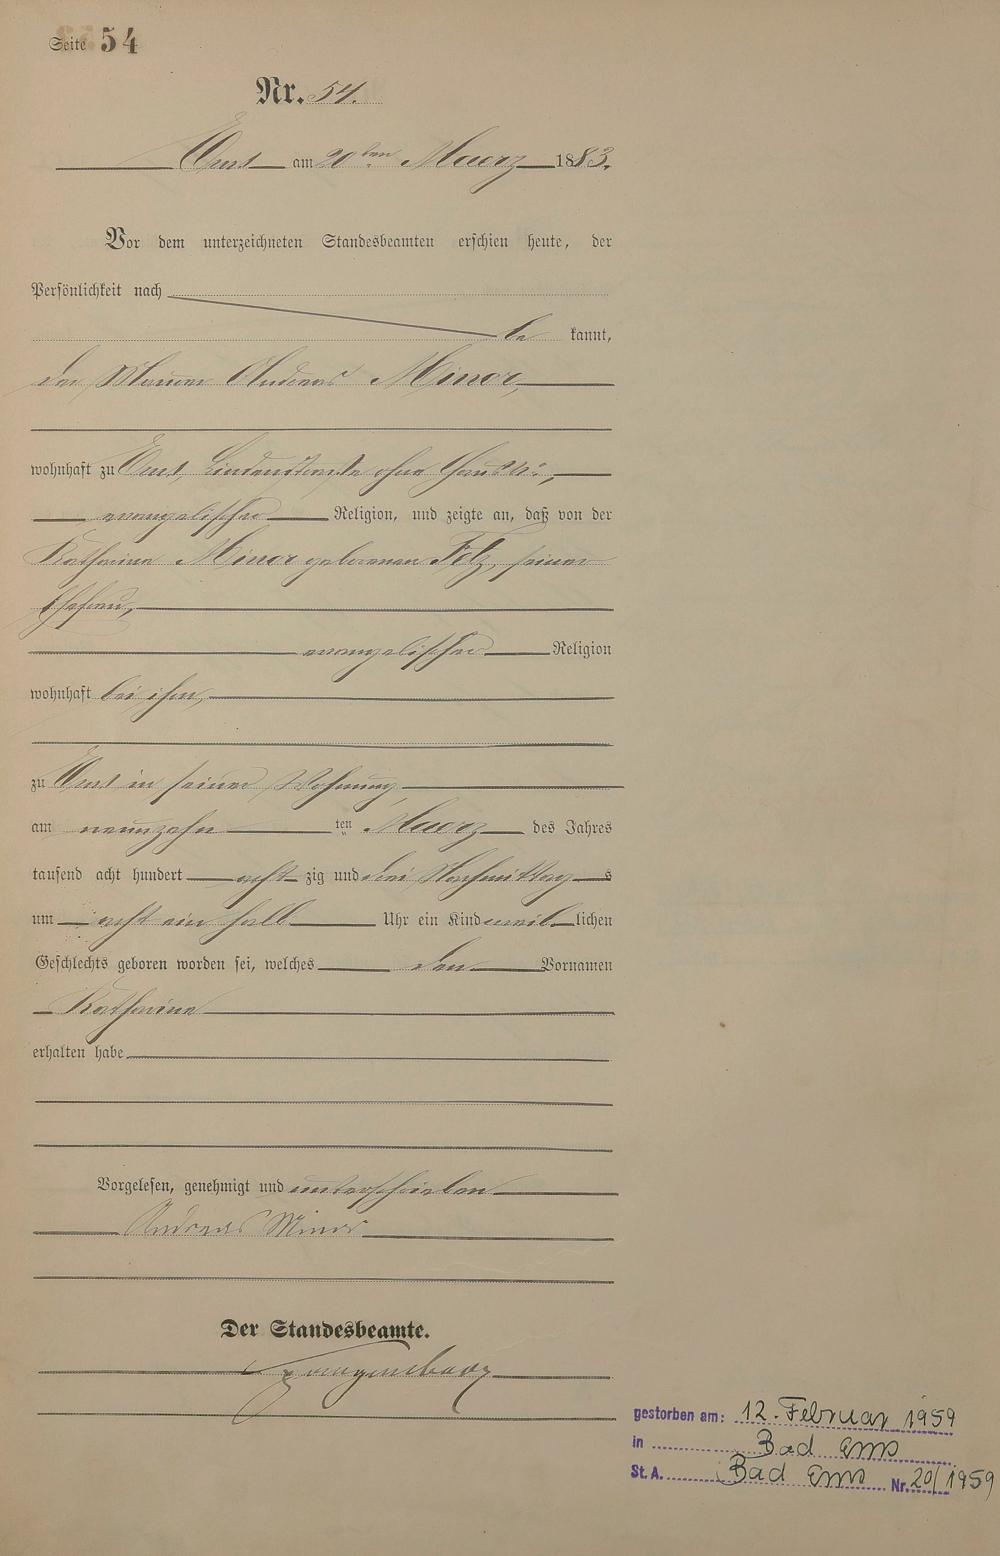 Seite 54
Nr. 54.
Ems am 20ten Maerz 1883.
Vor dem unterzeichneten Standesbeamten erschien heute, der
Persönlichkeit nach
be kannt,
der Maurer Andreas Minor,
wohnhaft zu Ems, Lindenstraße ohne Haus N:,
evangelischer Religion, und zeigte an, daß von der
Katharina Minor geborenen Felz, seiner
Ehefrau,
evangelischer Religion
wohnhaft bei ihm,
zu Ems in seiner Wohnung
am neunzehn ten Maerz des Jahres
tausend acht hundert acht zig und drei Nachmittag s
um acht ein halb Uhr ein Kind weib lichen
Geschlechts geboren worden sei, welches den Vornamen
Katharina
erhalten habe
Vorgelesen, genehmigt und unterschrieben
Andreas Minor
Der Standesbeamte.
gestorben am: 12. Februar 1959
in Bad Ems
St. A. Bad Ems Nr. 20/1959